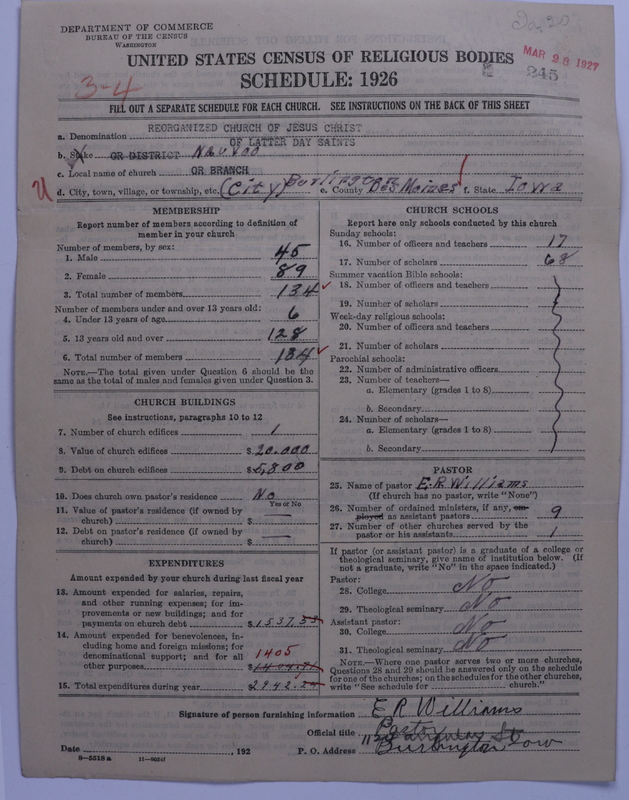 DEPARTMENT OF COMMERCE
BUREAU OF THE CENSUS
WASHINGTON
UNITED STATES CENSUS OF RELIGIOUS BODIES
MAR 23 1927
245
SCHEDULE: 1926
3-4
FILL OUT A SEPARATE SCHEDULE FOR EACH CHURCH. SEE INSTRUCTIONS ON THE BACK OF THIS SHEET
REORGANIZED CHURCH OF JESUS CHRIST
a. Denomination
OF LATTER DAY SAINTS
b. Stake OR DISTRICT Nauvoo
c. Local name of church OR BRANCH
d. City, town, village, or township, etc. (City) Burlington e. County Des Moines f. State Iowa
MEMBERSHIP
Report number of members according to definition of
member in your church
Number of members, by sex:
1. Male 45
2. Female 89
3. Total number of members 134
Number of members under and over 13 years old:
4. Under 13 years of age 6
5. 13 years old and over 128
6. Total number of members 134
NOTE.—The total given under Question 6 should be the
same as the total of males and females given under Question 3.
CHURCH BUILDINGS
See instructions, paragraphs 10 to 12
7. Number of church edifices 1
8. Value of church edifices $20.000
9. Debt on church edifices $5,800
10. Does church own pastor's residence No
Yes or No
11. Value of pastor's residence (if owned by
church) $
12. Debt on pastor's residence (if owned by
church) $
EXPENDITURES
Amount expended by your church during last fiscal year
13. Amount expended for salaries, repairs,
and other running expenses; for im-
provements or new buildings; and for
payments on church debt $1537.53
14. Amount expended for benevolences, in-
cluding home and foreign missions; for
denominational support; and for all
other purposes 1405
15. Total expenditures during year $2942.24
CHURCH SCHOOLS
Report here only schools conducted by this church
Sunday schools:
16. Number of officers and teachers 17
17. Number of scholars 68
Summer vacation Bible schools:
18. Number of officers and teachers
19. Number of scholars
Week-day religious schools:
20. Number of officers and teachers
21. Number of scholars
Parochial schools:
22. Number of administrative officers
23. Number of teachers—
a. Elementary (grades 1 to 8)
b. Secondary
24. Number of scholars—
a. Elementary (grades 1 to 8)
b. Secondary
PASTOR
25. Name of pastor E.R. Williams
(If church has no pastor, write "None")
26. Number of ordained ministers, if any, em-
ployed as assistant pastors 9
27. Number of other churches served by the
pastor or his assistants 1
If pastor (or assistant pastor) is a graduate of a college or
theological seminary, give name of institution below. (If
not a graduate, write "No" in the space indicated.)
Pastor:
28. College No
29. Theological seminary No
Assistant pastor:
30. College No
31. Theological seminary No
NOTE.—Where one pastor serves two or more churches,
Questions 28 and 29 should be answered only on the schedule
for one of the churches; on the schedules for the other churches,
write "See schedule for church."
Signature of person furnishing information E R Williams
Official title Pastor
Date , 192
P. O. Address Burlington Iow
8-5518 a 11-9034f